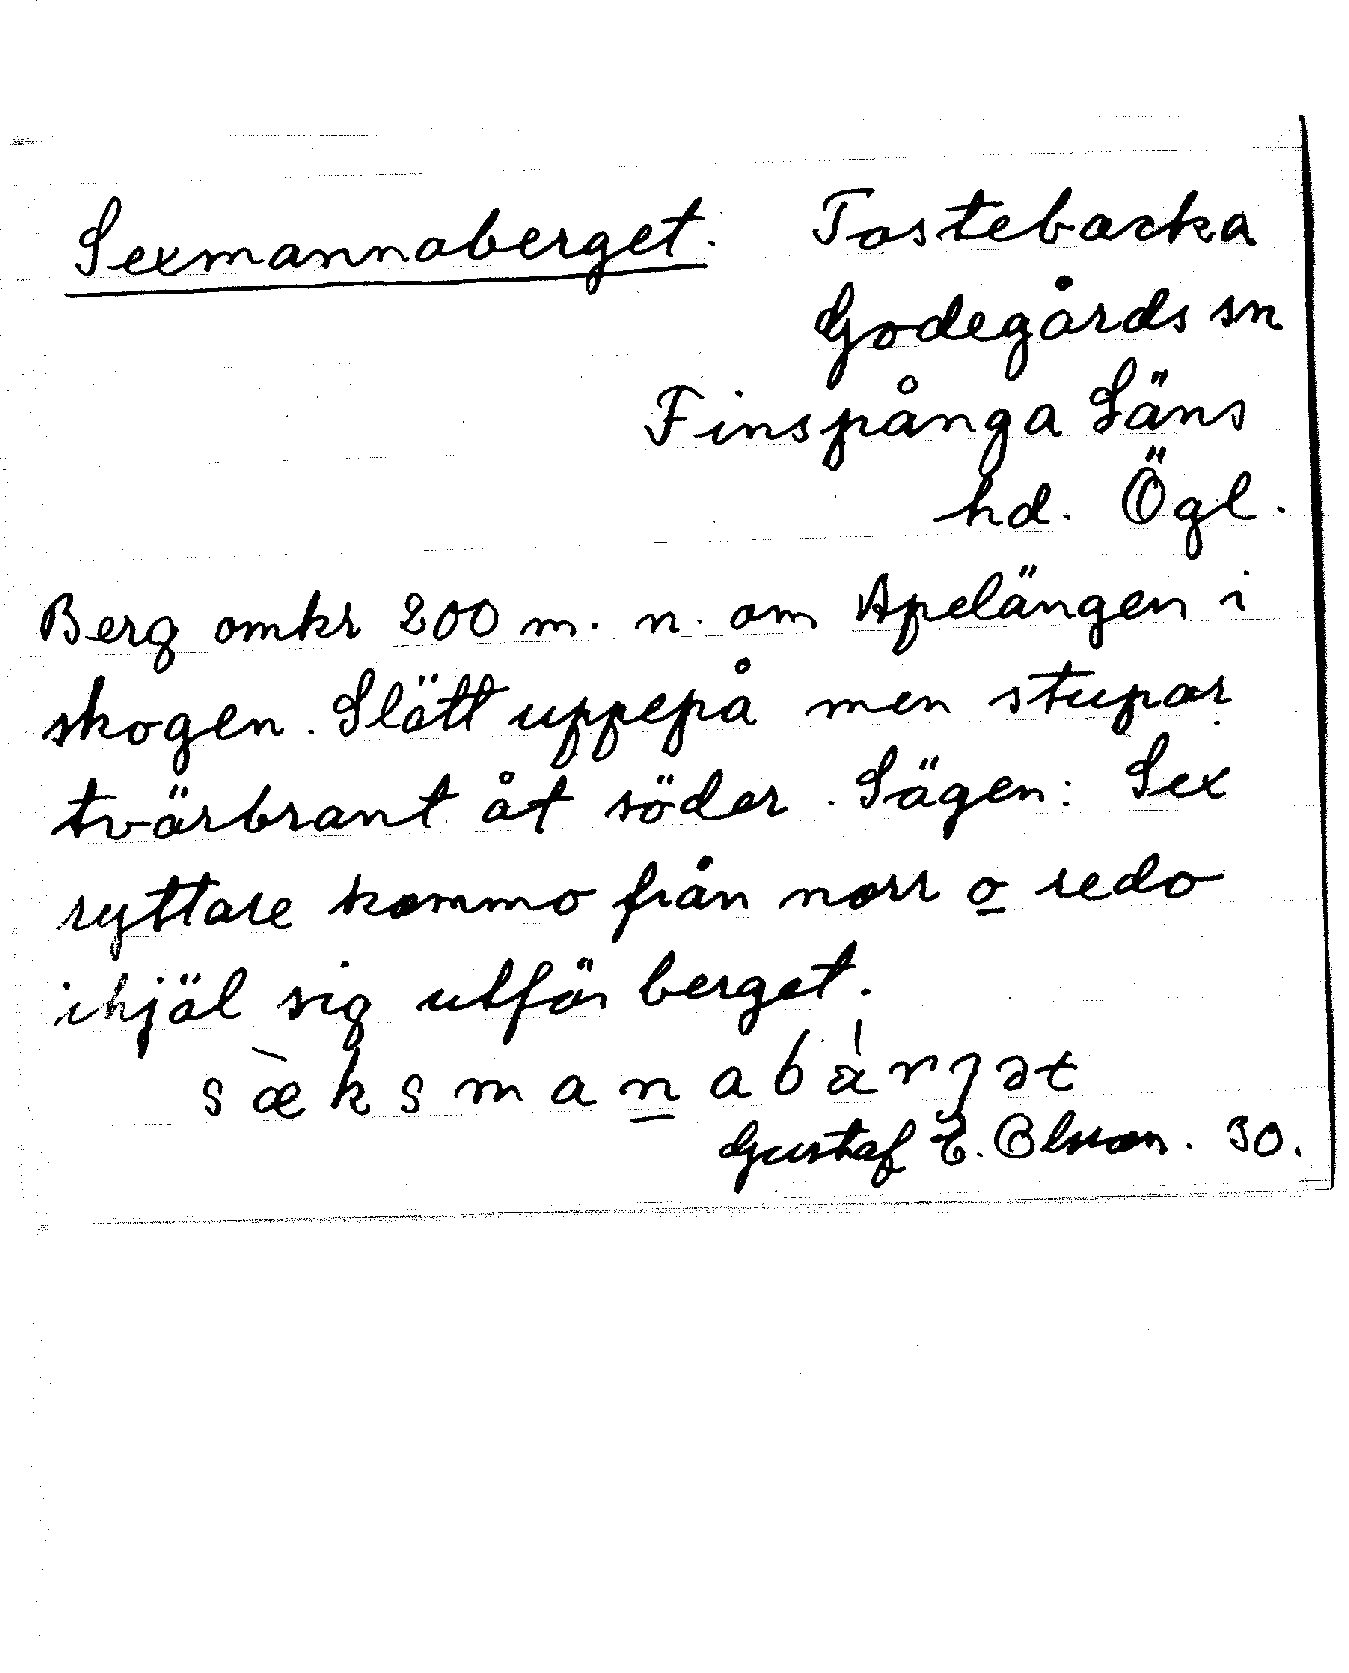 Sexmannaberget. Tostebacka
Godegårds sn
Finspånga Läns
hd. Ögl.
Berg omkr 200 m. n. om Apelängen i
skogen. Slätt uppepå men stupar
tvärbrant åt söder. Sägen: Sex
ryttare kommo från norr o redo
ihjäl sig utför berget.
sæ̀ksmanabàrʒət
Gustaf E. Olsson. 30.